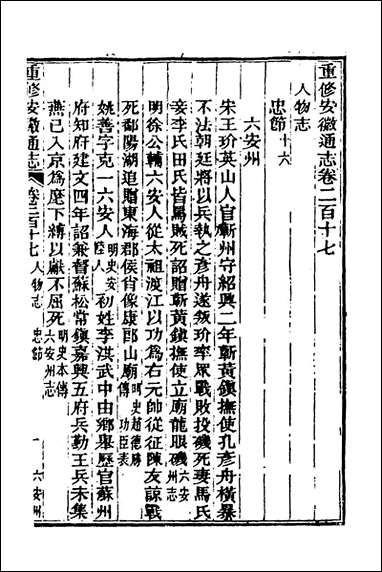 重修安徽通志卷二百十七
人物志
忠節十六
六安州
宋王玠英山人官蘄州守紹興二年蘄黃鎮撫使孔彥舟橫暴
不法朝廷將以兵執之彥舟遂叛玠率眾戰敗投磯死妻馬氏
妾李氏田氏皆罵賊死詔贈蘄黃鎮撫使立廟龍眼磯六安州志
明徐公輔六安人從太祖渡江以功為右元帥從征陳友諒戰
死鄱陽湖追贈東海郡侯肖像康郎山廟明史趙德勝傳 功臣表
姚善字克一六安人明史安陸人初姓李洪武中由鄉舉歷官蘇州
府知府建文四年詔兼督蘇松常鎮嘉興五府兵勤王兵未集
燕已入京為麾下縛以獻不屈死明史本傳 六安州志
重修安徽通志 卷二百十七 人物志 忠節 一 六安州